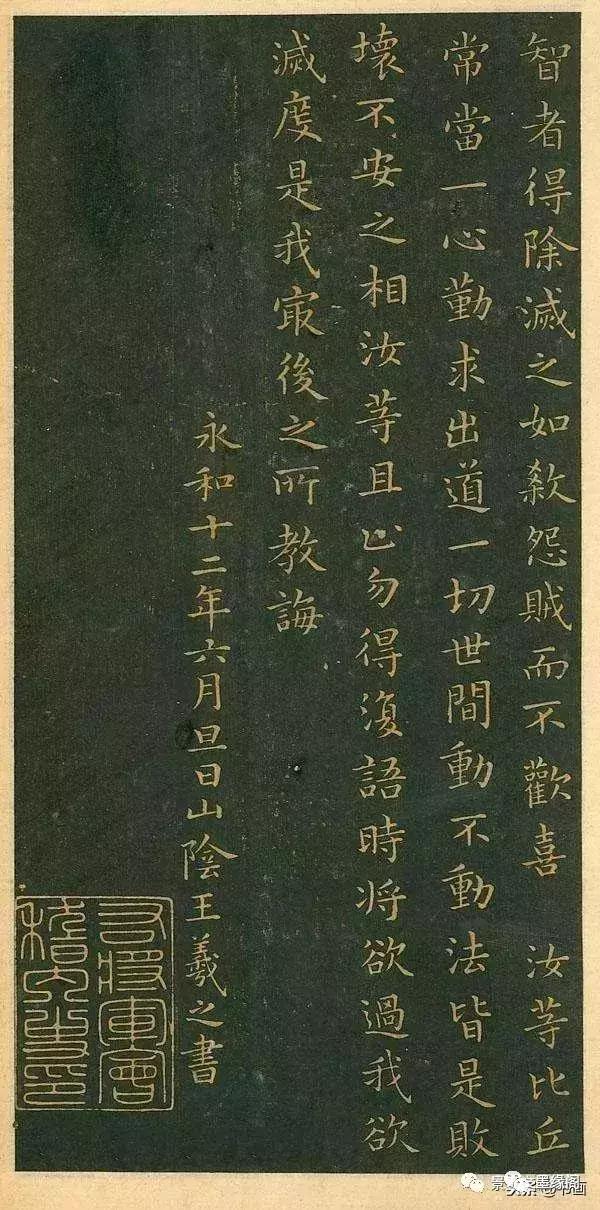 智者得除滅之如殺怨賊而不歡喜　汝等比丘
常當一心勤求出道一切世間動不動法皆是敗
壞不安之相汝等且止勿得復語時將欲過我欲
滅度是我寂後之所教誨
永和十二年六月旦日山陰王羲之書
右將軍會
稽內史印